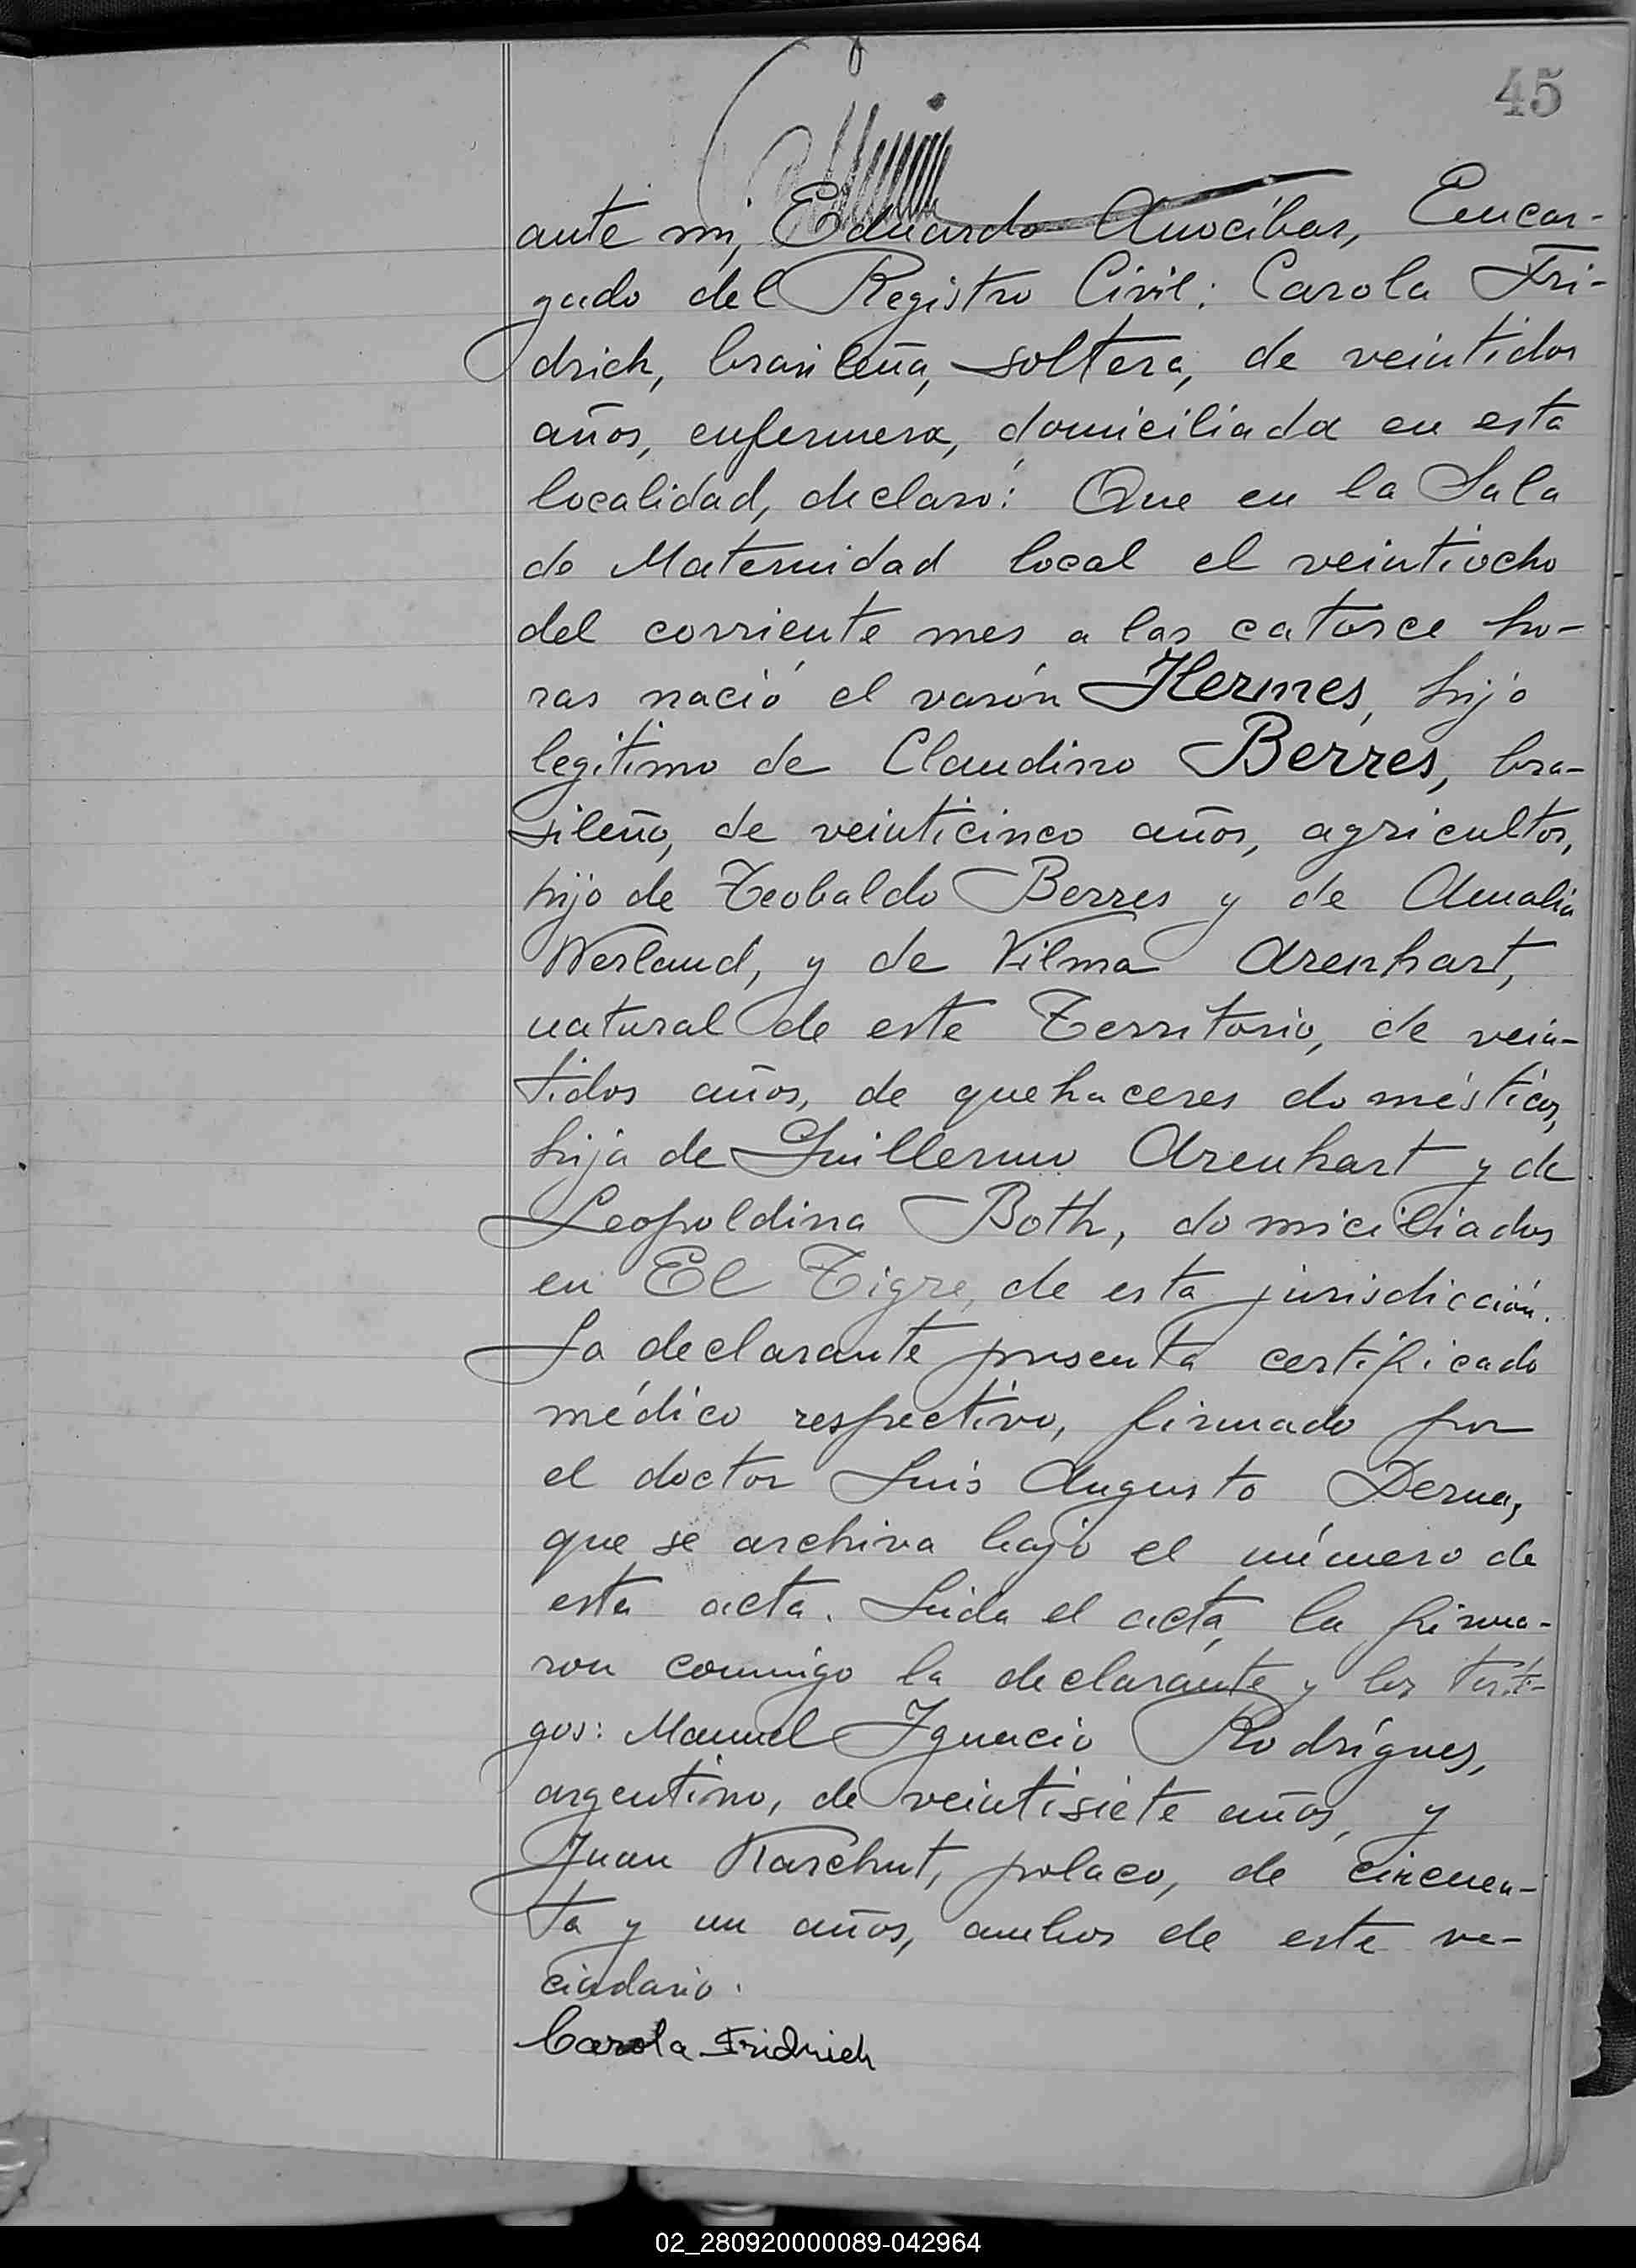 45
ante mi, Eduardo Anocíbar, Encar-
gado del Registro Civil: Carola Fri-
drich, brasileña, soltera, de veintidos
años, enfermera, domiciliada en esta
localidad, declaró: Que en la Sala
de Maternidad local el veintiocho
del corriente mes a las catorce ho-
ras nació el varón Hermes, hijo
legitimo de Claudino Berres, bra-
sileño, de veinticinco años, agricultor,
hijo de Teobaldo Berres y de Amalia
Werland, y de Vilma Arenhart,
natural de este Territorio, de vein-
tidos años, de quehaceres domésticos,
hija de Guillermo Arenhart y de
Leopoldina Both, domiciliados
en El Tigre, de esta jurisdicción.
La declarante presenta certificado
médico respectivo, firmado por
el doctor Luis Augusto Derna,
que se archiva bajo el número de
esta acta. Leida el acta, la firma-
ron conmigo la declarante y los testi-
gos: Manuel Ignacio Rodrígues,
argentino, de veintisiete años, y
Juan Karchut, polaco, de cincuen-
ta y un años, ambos de este ve-
cindario.
Carola Fridrich
02_280920000089-042964